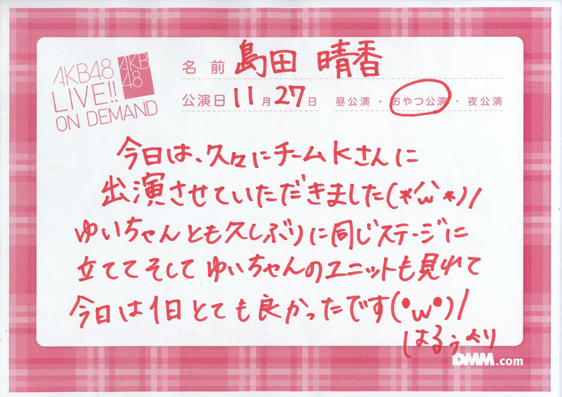 AKB48
LIVE!!
ON DEMAND
AKB
48
名前 島田 晴香
公演日 11月27日 昼公演・おやつ公演・夜公演
今日は、久々にチームKさんに
出演させていただきました(*'ω'*)/
ゆいちゃんとも久しぶりに同じステージに
立ててそして ゆいちゃんのユニットも見れて
今日は1日とても良かったです(•ω•)/
はるぅより
DMM.com